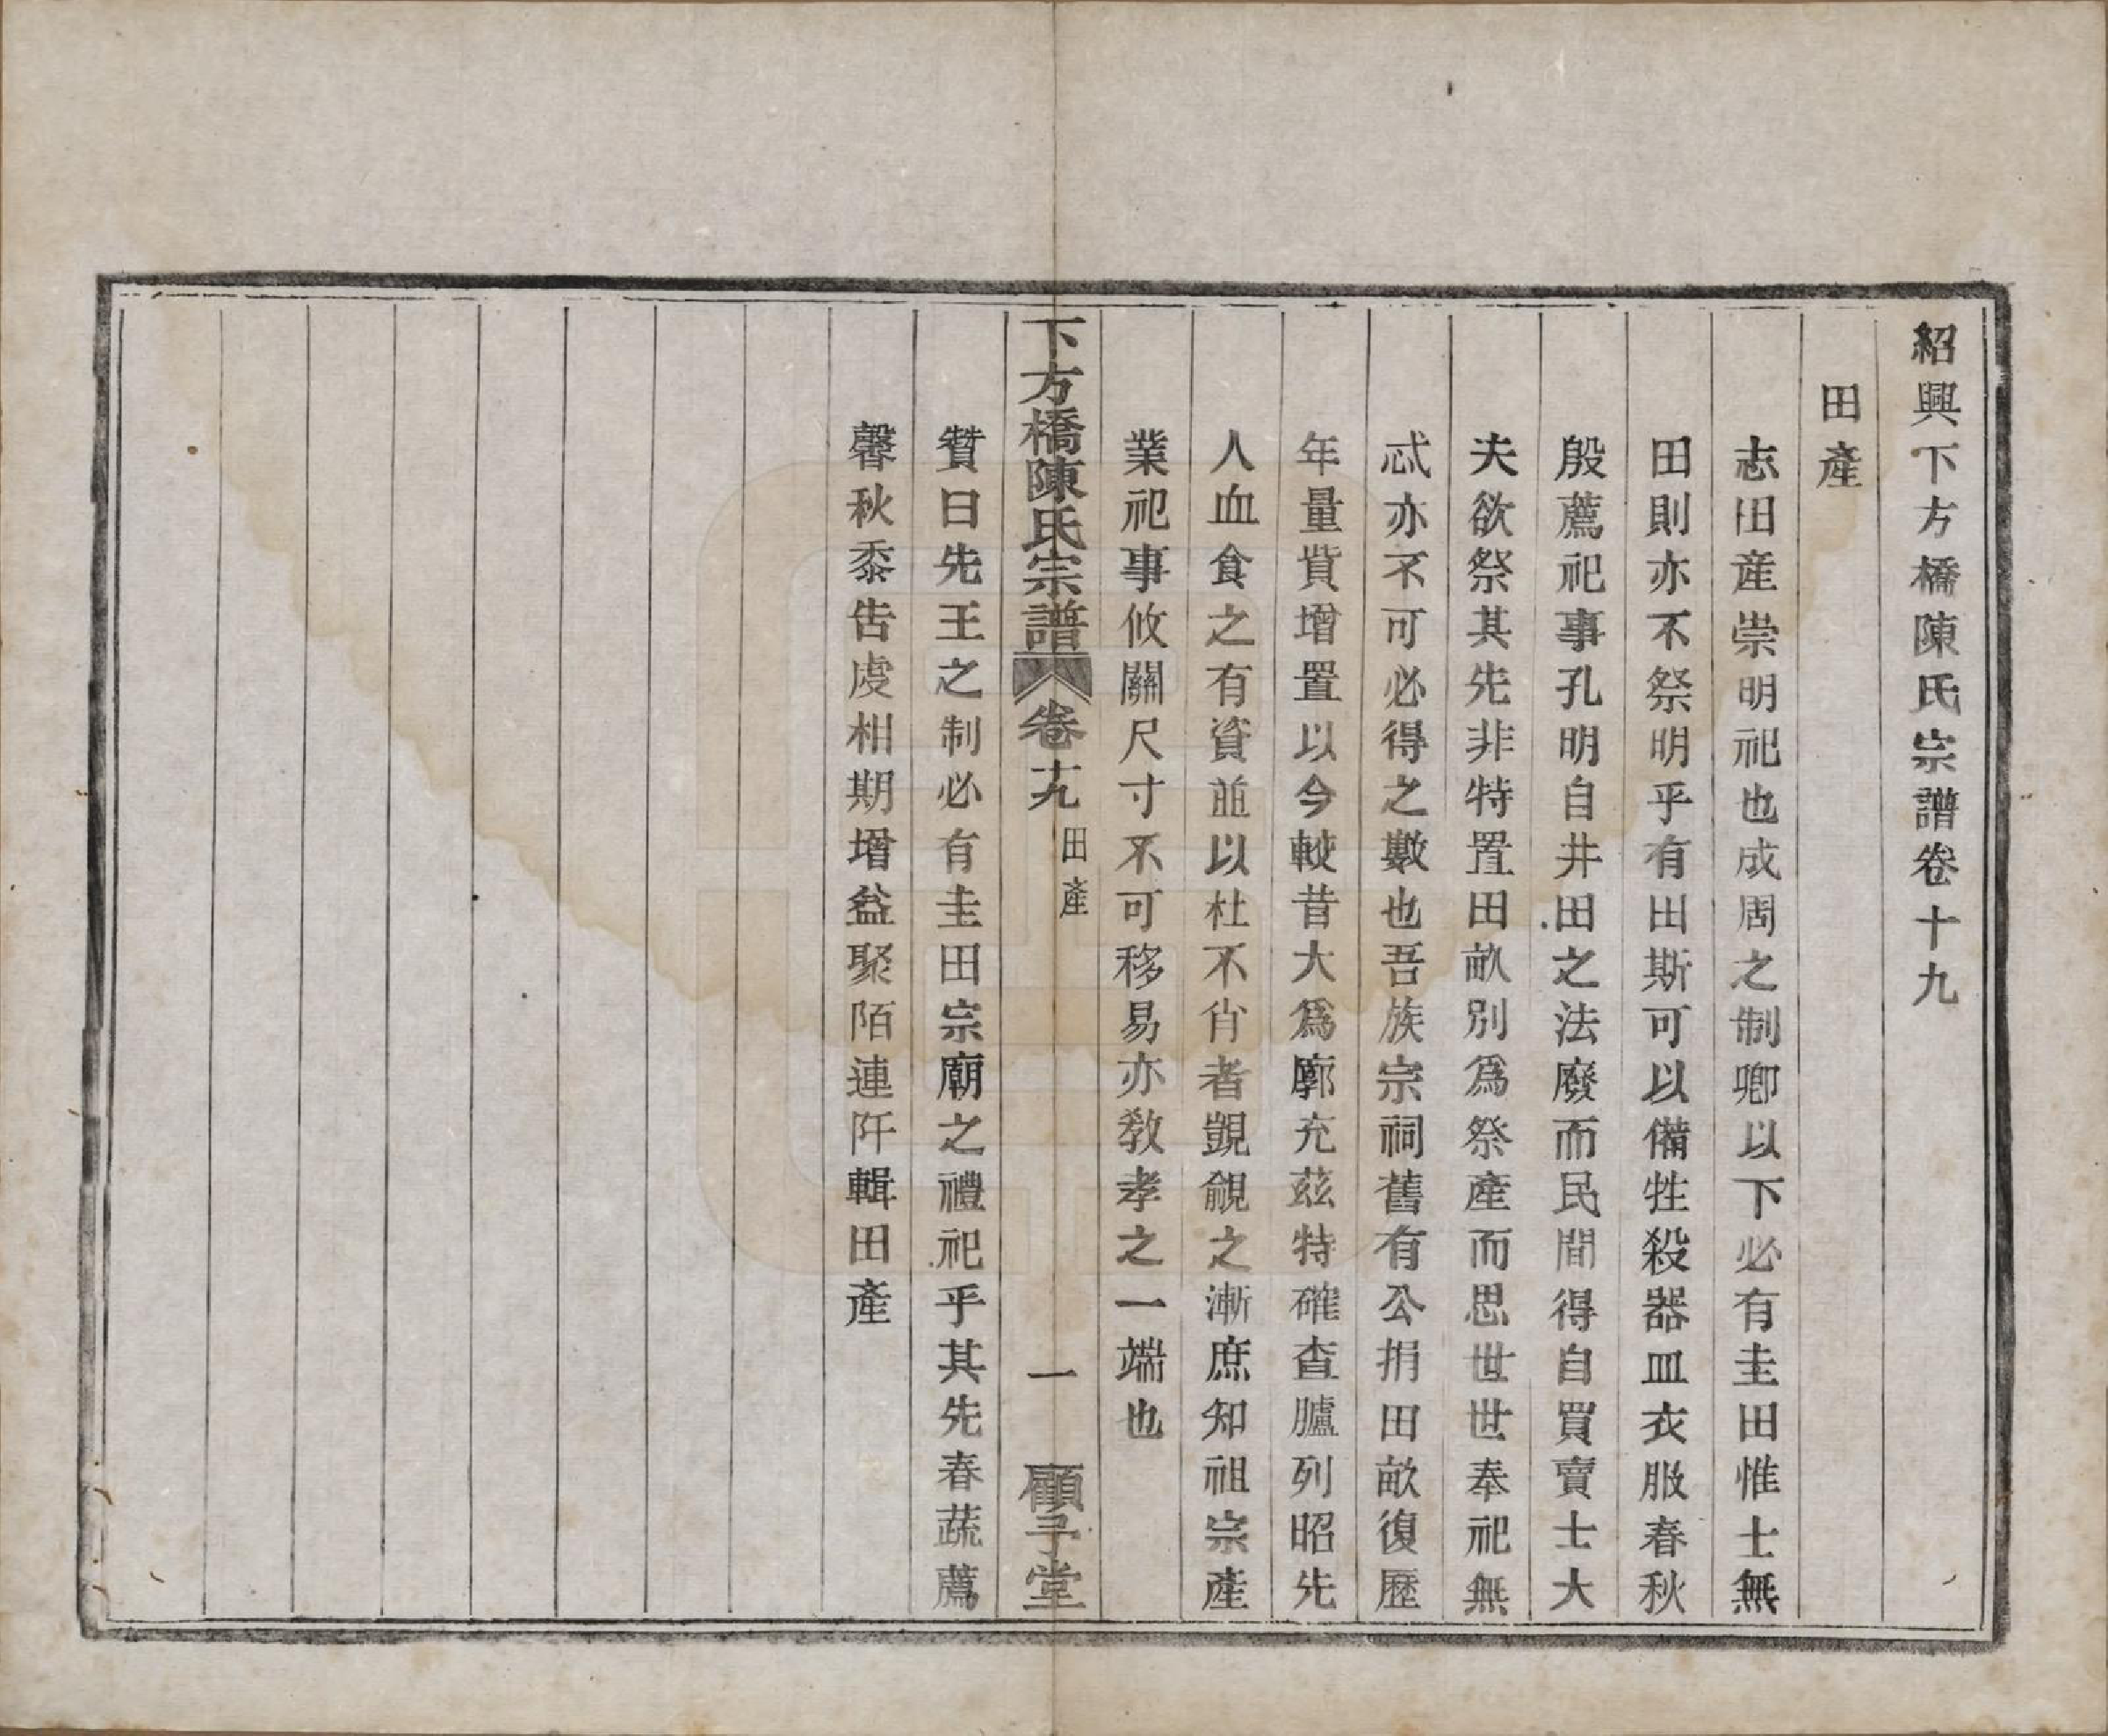 紹興下方橋陳氏宗譜卷十九
田產
志田產崇明祀也成周之制卿以下必有圭田惟士無
田則亦不祭明乎有田斯可以備牲殺器皿衣服春秋
殷薦祀事孔明自井田之法廢而民間得自買賣士大
夫欲祭其先非特置田畝別爲祭產而思世世奉祀無
忒亦不可必得之數也吾族宗祠舊有公捐田畝復歷
年量貲增置以今較昔大爲廓充茲特確查臚列昭先
人血食之有資並以杜不肖者覬覦之漸庶知祖宗產
業祀事攸關尺寸不可移易亦敎孝之一端也
下方橋陳氏宗譜 卷十九 田產 一 顧子堂
贊曰先王之制必有圭田宗廟之禮祀乎其先春蔬薦
馨秋黍告虔相期增益聚陌連阡輯田產